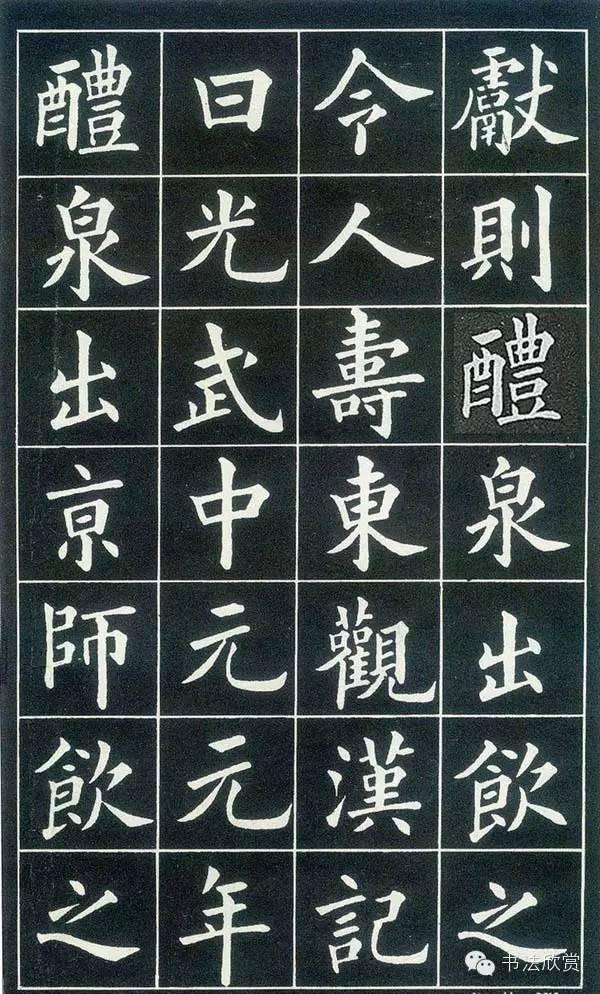 獻則醴泉出飲之
令人壽東觀漢記
曰光武中元元年
醴泉出京師飲之
书法欣赏